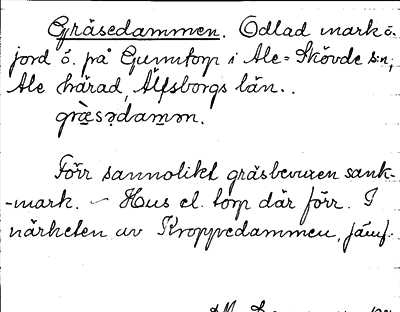 Gräsedammen. Odlad mark o.
jord ö. på Gunntorp i Ale-Skövde s:n,
Ale härad, Älfsborgs län.
græ̀sədamən.
Förr sannolikt gräsbevuxen sank-
-mark. – Hus el. torp där förr. I
närheten av Kroppedammen, jämf.